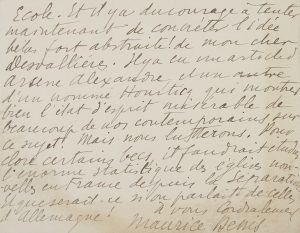 Ecole. Et il y a du courage à tenter
maintenant de concréter l'idée
hélas fort abstraite de mon cher
Desvallières. Il y a eu un article d'
Arsène Alexandre, et un autre
d'un nommé Hourticq qui montrent
bien l'état d'esprit misérable de
beaucoup de nos contemporains, sur
ce sujet. Mais nous lutterons. Pour
clore certains becs, il faudrait étudier
l'énorme statistique des églises nou-
velles en France depuis la Séparation
et que serait-ce si on parlait de celles
d'Allemagne!
à vous cordialement
Maurice Denis